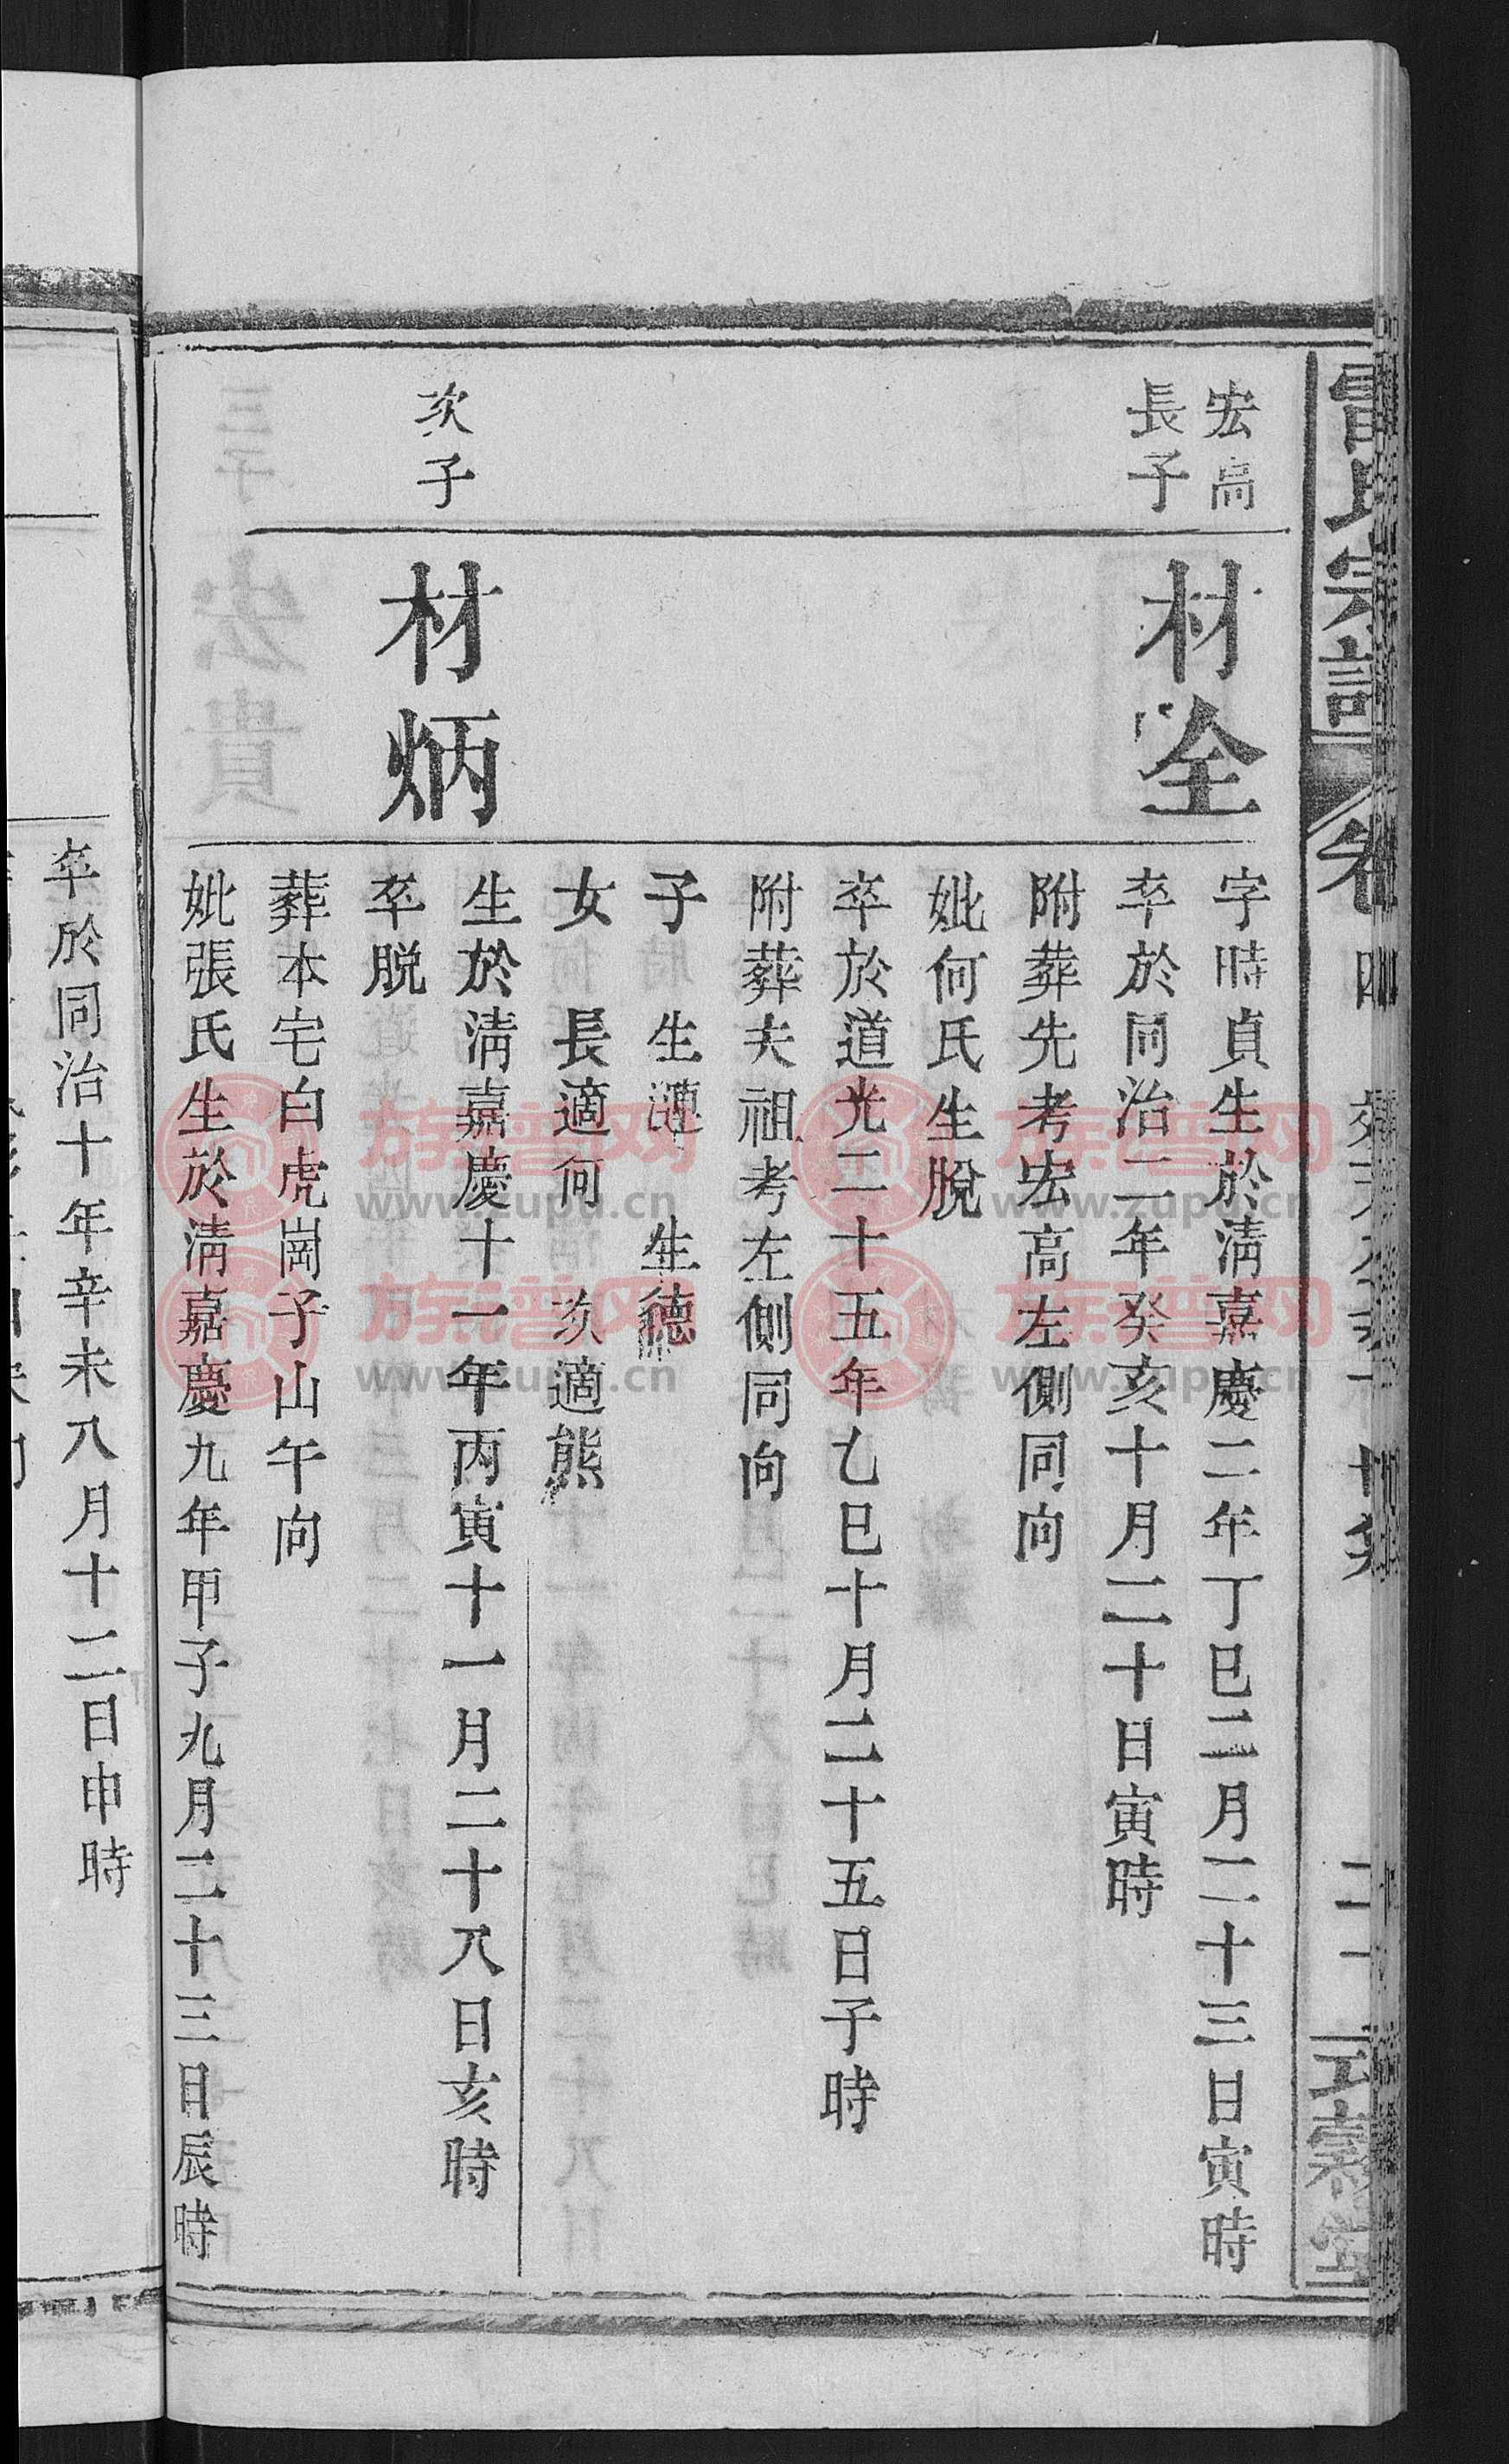 雷氏宗譜
卷四
二十
式
宏高
長子
材全
字時貞生於淸嘉慶二年丁巳二月二十三日寅時
卒於同治二年癸亥十月二十日寅時
附葬先考宏高左側同向
妣何氏生脫
卒於道光二十五年乙巳十月二十五日子時
附葬夫祖考左側同向
子 生漣 生德
女 長適何 次適熊
次子
材炳
生於淸嘉慶十一年丙寅十一月二十八日亥時
卒脱
葬本宅白虎崗子山午向
妣張氏生於淸嘉慶九年甲子九月二十三日辰時
卒於同治十年辛未八月十二日申時
族谱网
www.zupu.cn
族谱网
www.zupu.cn
族谱网
www.zupu.cn
族谱网
www.zupu.cn